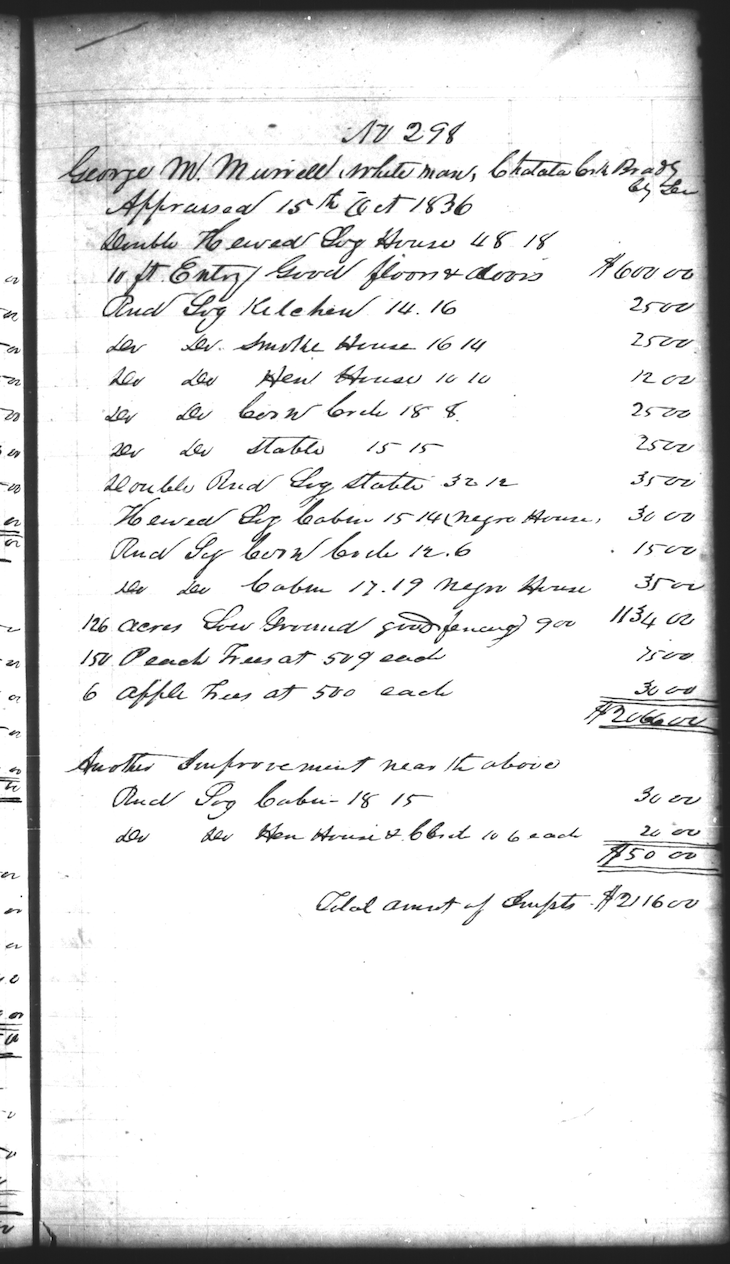 No 298
George M. Murrell white man, Chatata Crk Bradly
Cy Ten
Appraised 15th Oct 1836
Double Hewed Log House 48 18
10 ft Entry Good floors & doors $600 00
Rnd Log Kitchen 14. 16 25 00
Do Do. Smoke House 16 14 25 00
Do Do Hen House 10 10 12 00
Do Do Corn Crib 18 8. 25 00
Do Do Stable 15 15 25 00
Double Rnd Log Stable 32 12 35 00
Hewed Log Cabin 15 14 (Negro House, 30 00
Rnd Log Corn Crib 12. 6 15 00
Do Do Cabin 17. 19 Negro House 35 00
126 acres Low Ground good fencing) 900 1134 00
150 Peach Trees at 50 each 75 00
6 Apple Trees at 500 each 30 00
$2066 00
Another Improvement near th above
Rnd Log Cabin - 18 15 30 00
Do Do Hen House & C Crib 10 6 each 20 00
$50 00
Total amnt of Impts $2116 00